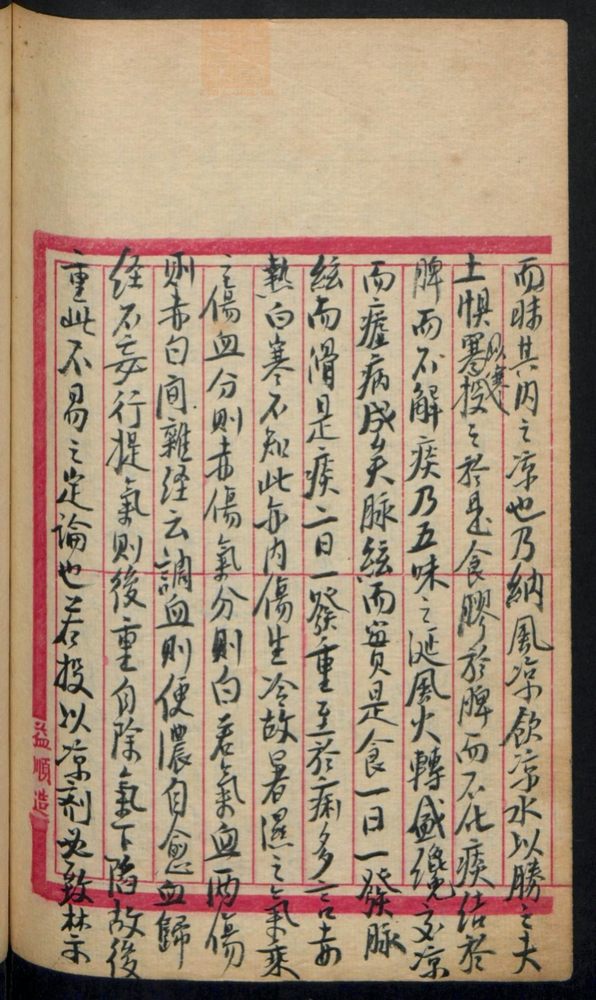 而昧其内之凉也乃納風凉飲凉水以勝之夫
土惧寒投以寒之於是食膠於脾而不化痰结於
脾而不解痰乃五味之涎風火轉盛纔交凉
而瘧病盛矣脉絃而實是食一日一發脉
絃而滑是痰二日一發重至於痢多言毒
熱白寒不知此亦内傷生冷故暑濕之氣乘
之傷血分則赤傷氣分則白若氣血两傷
則赤白间雜经云調血則便濃自愈血歸
经不妄行提氣則後重自除氣下陷故後
重此不易之定論也若投以凉剂必致禁
益順造